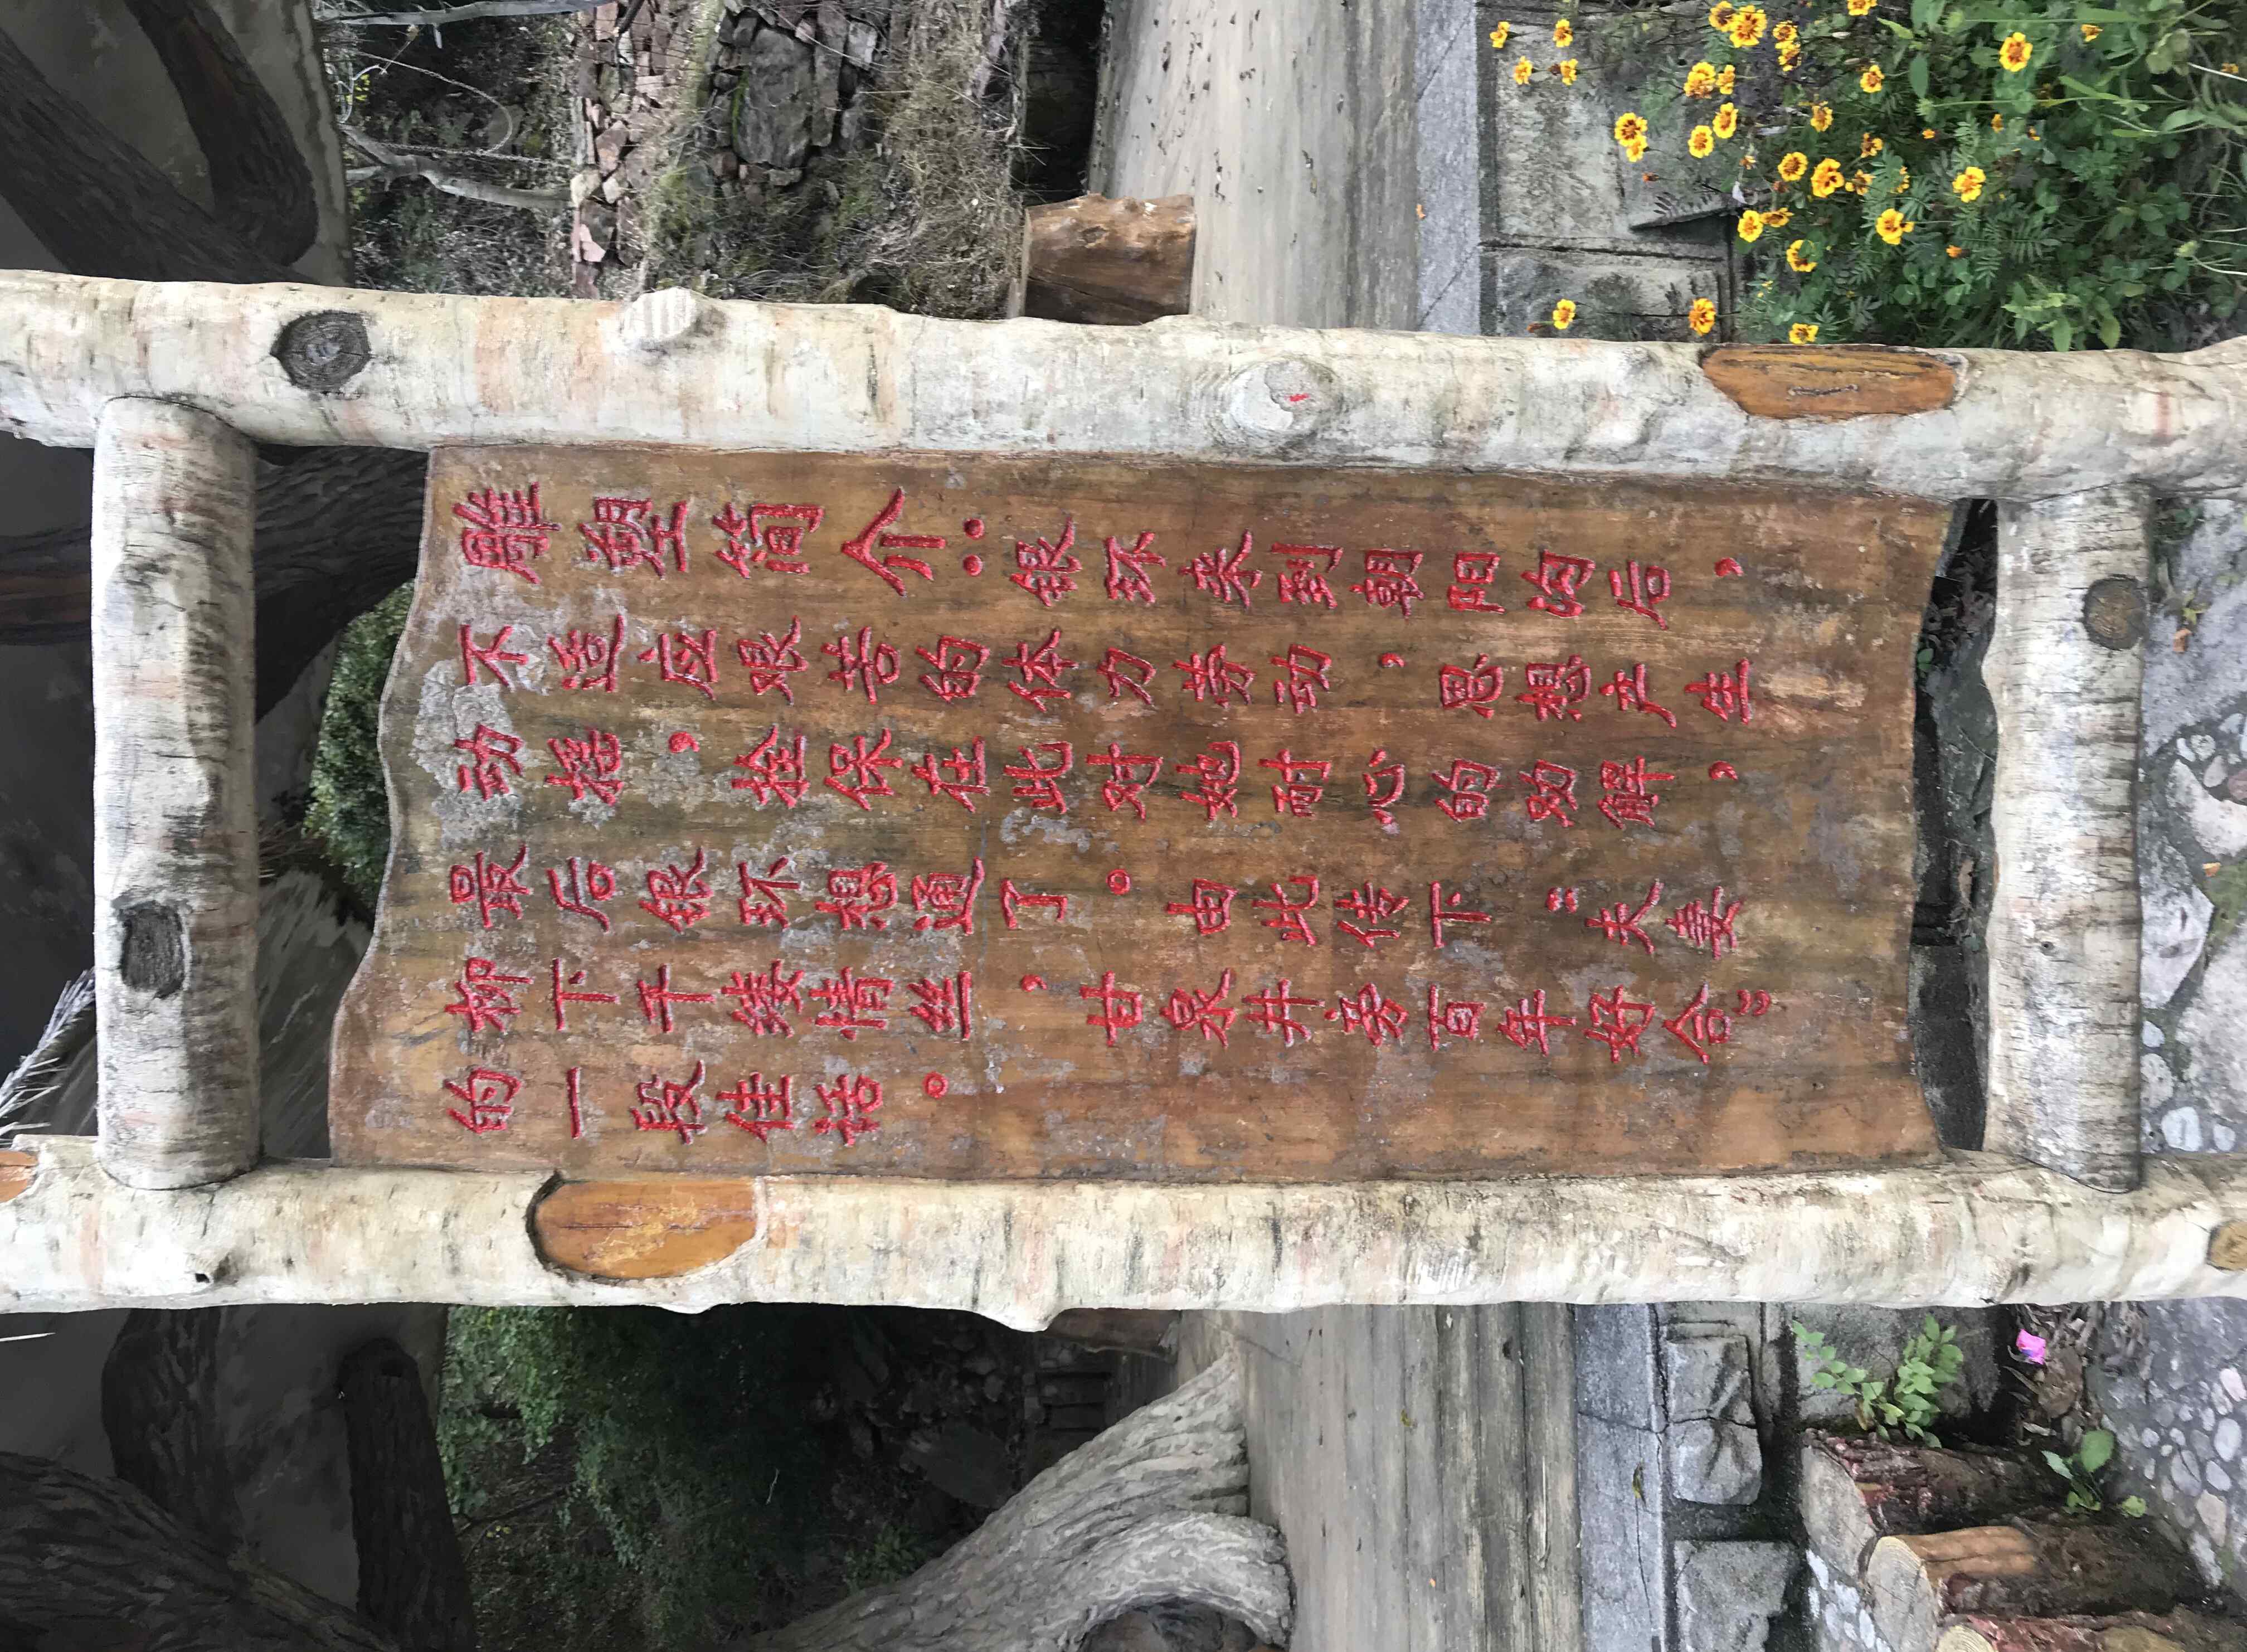 雕塑简介：银环来到朝阳沟后，
不适应艰苦的体力劳动，思想产生
动摇，栓保在此对她耐心的劝解，
最后银环想通了。由此传下“夫妻
柳下千缕情丝，甘泉井旁百年好合”
的一段佳话。